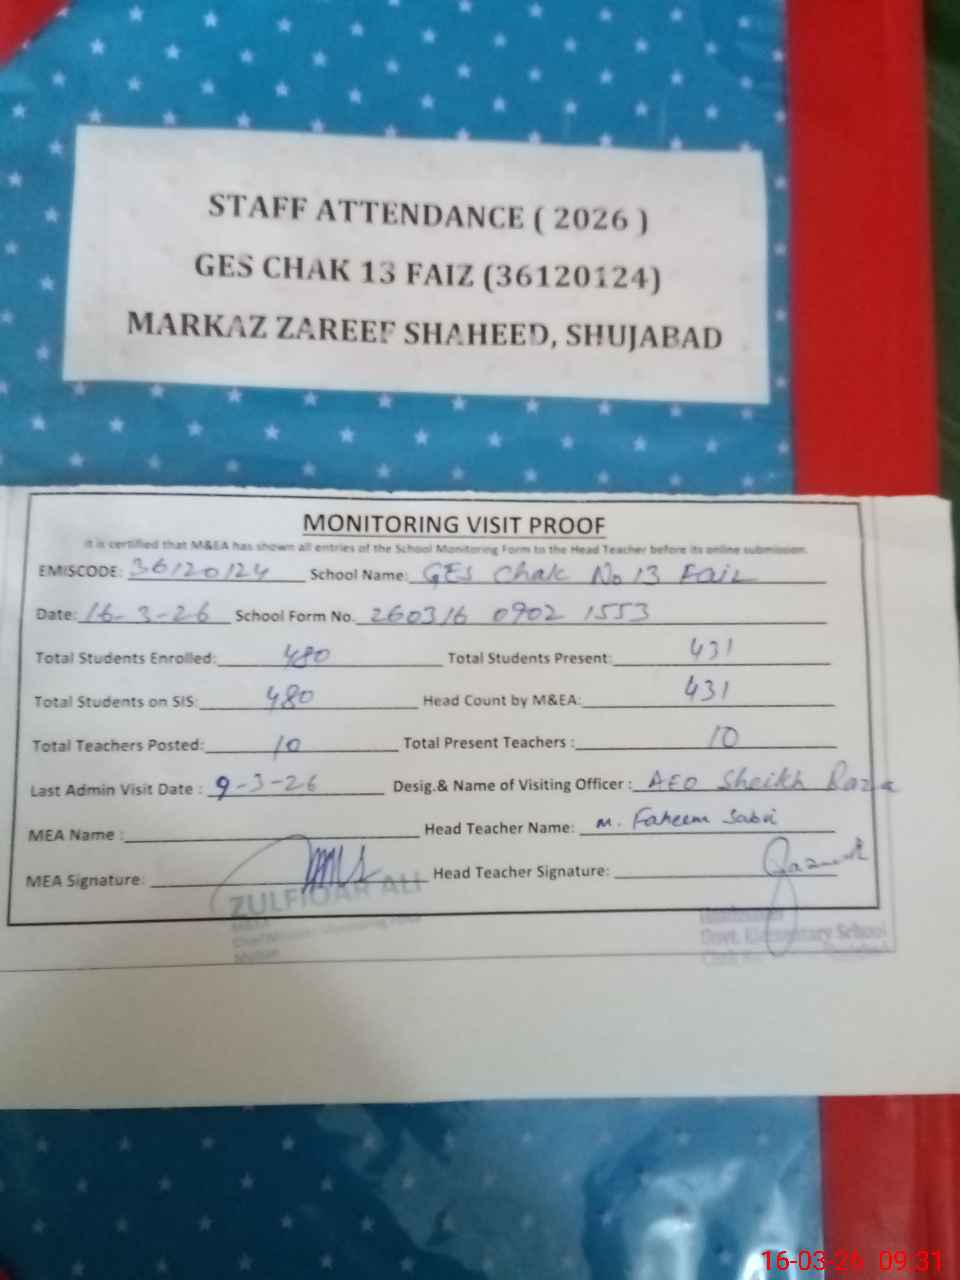 STAFF ATTENDANCE ( 2026 )
GES CHAK 13 FAIZ (36120124)
MARKAZ ZAREEF SHAHEED, SHUJABAD
MONITORING VISIT PROOF
It is certified that M&EA has shown all entries of the School Monitoring Form to the Head Teacher before its online submission.
EMISCODE: 36120124 School Name: GES Chak No 13 Faiz
Date: 16-3-26 School Form No. 260316 0902 1553
Total Students Enrolled: 480 Total Students Present: 431
Total Students on SIS: 480 Head Count by M&EA: 431
Total Teachers Posted: 10 Total Present Teachers : 10
Last Admin Visit Date : 9-3-26 Desig.& Name of Visiting Officer : AEO Sheikh Raza
MEA Name : Head Teacher Name: M. Faheem Sabri
MEA Signature: Head Teacher Signature:
ZULFIQAR ALI
Govt. Elementary School
16-03-26 09:31